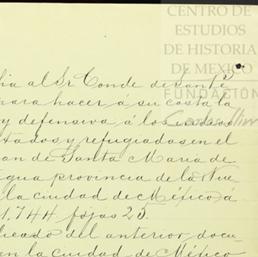 CENTRO DE
ESTUDIOS
DE HISTORIA
DE MEXICO
FUNDACIÓN
Carlos Slim
al Sr Conde de
para hacer á su costa la
y defensiva á los indios
tados y refugiados en el
an de Santa Maria de
gua provincia de la Nue
la ciudad de México á
1.744 fojas 25.
licado del anterior docu
en la ciudad de México